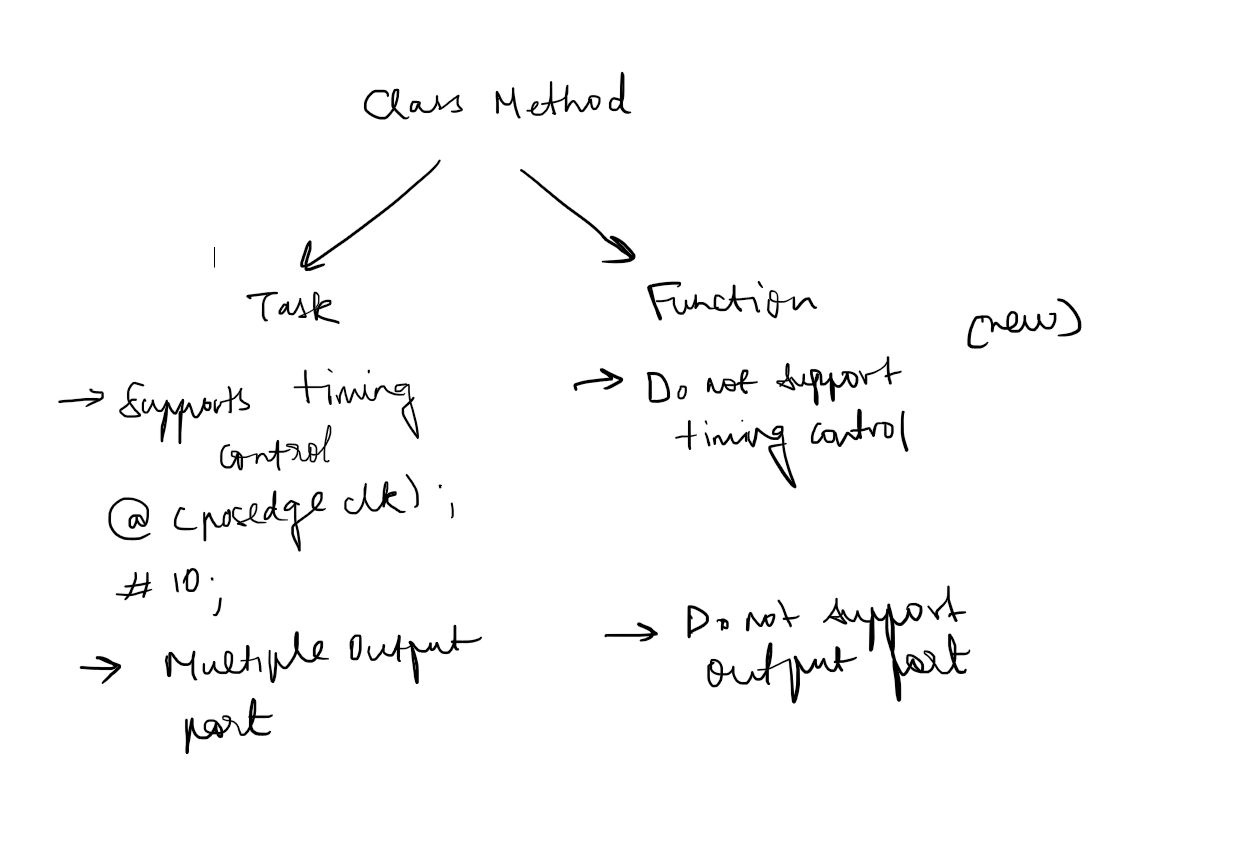 Class Method
Task
Function
(new)
→ Supports timing
control
@ (posedge clk);
# 10;
→ Multiple Output
port
→ Do not support
timing control
→ Do not support
output port